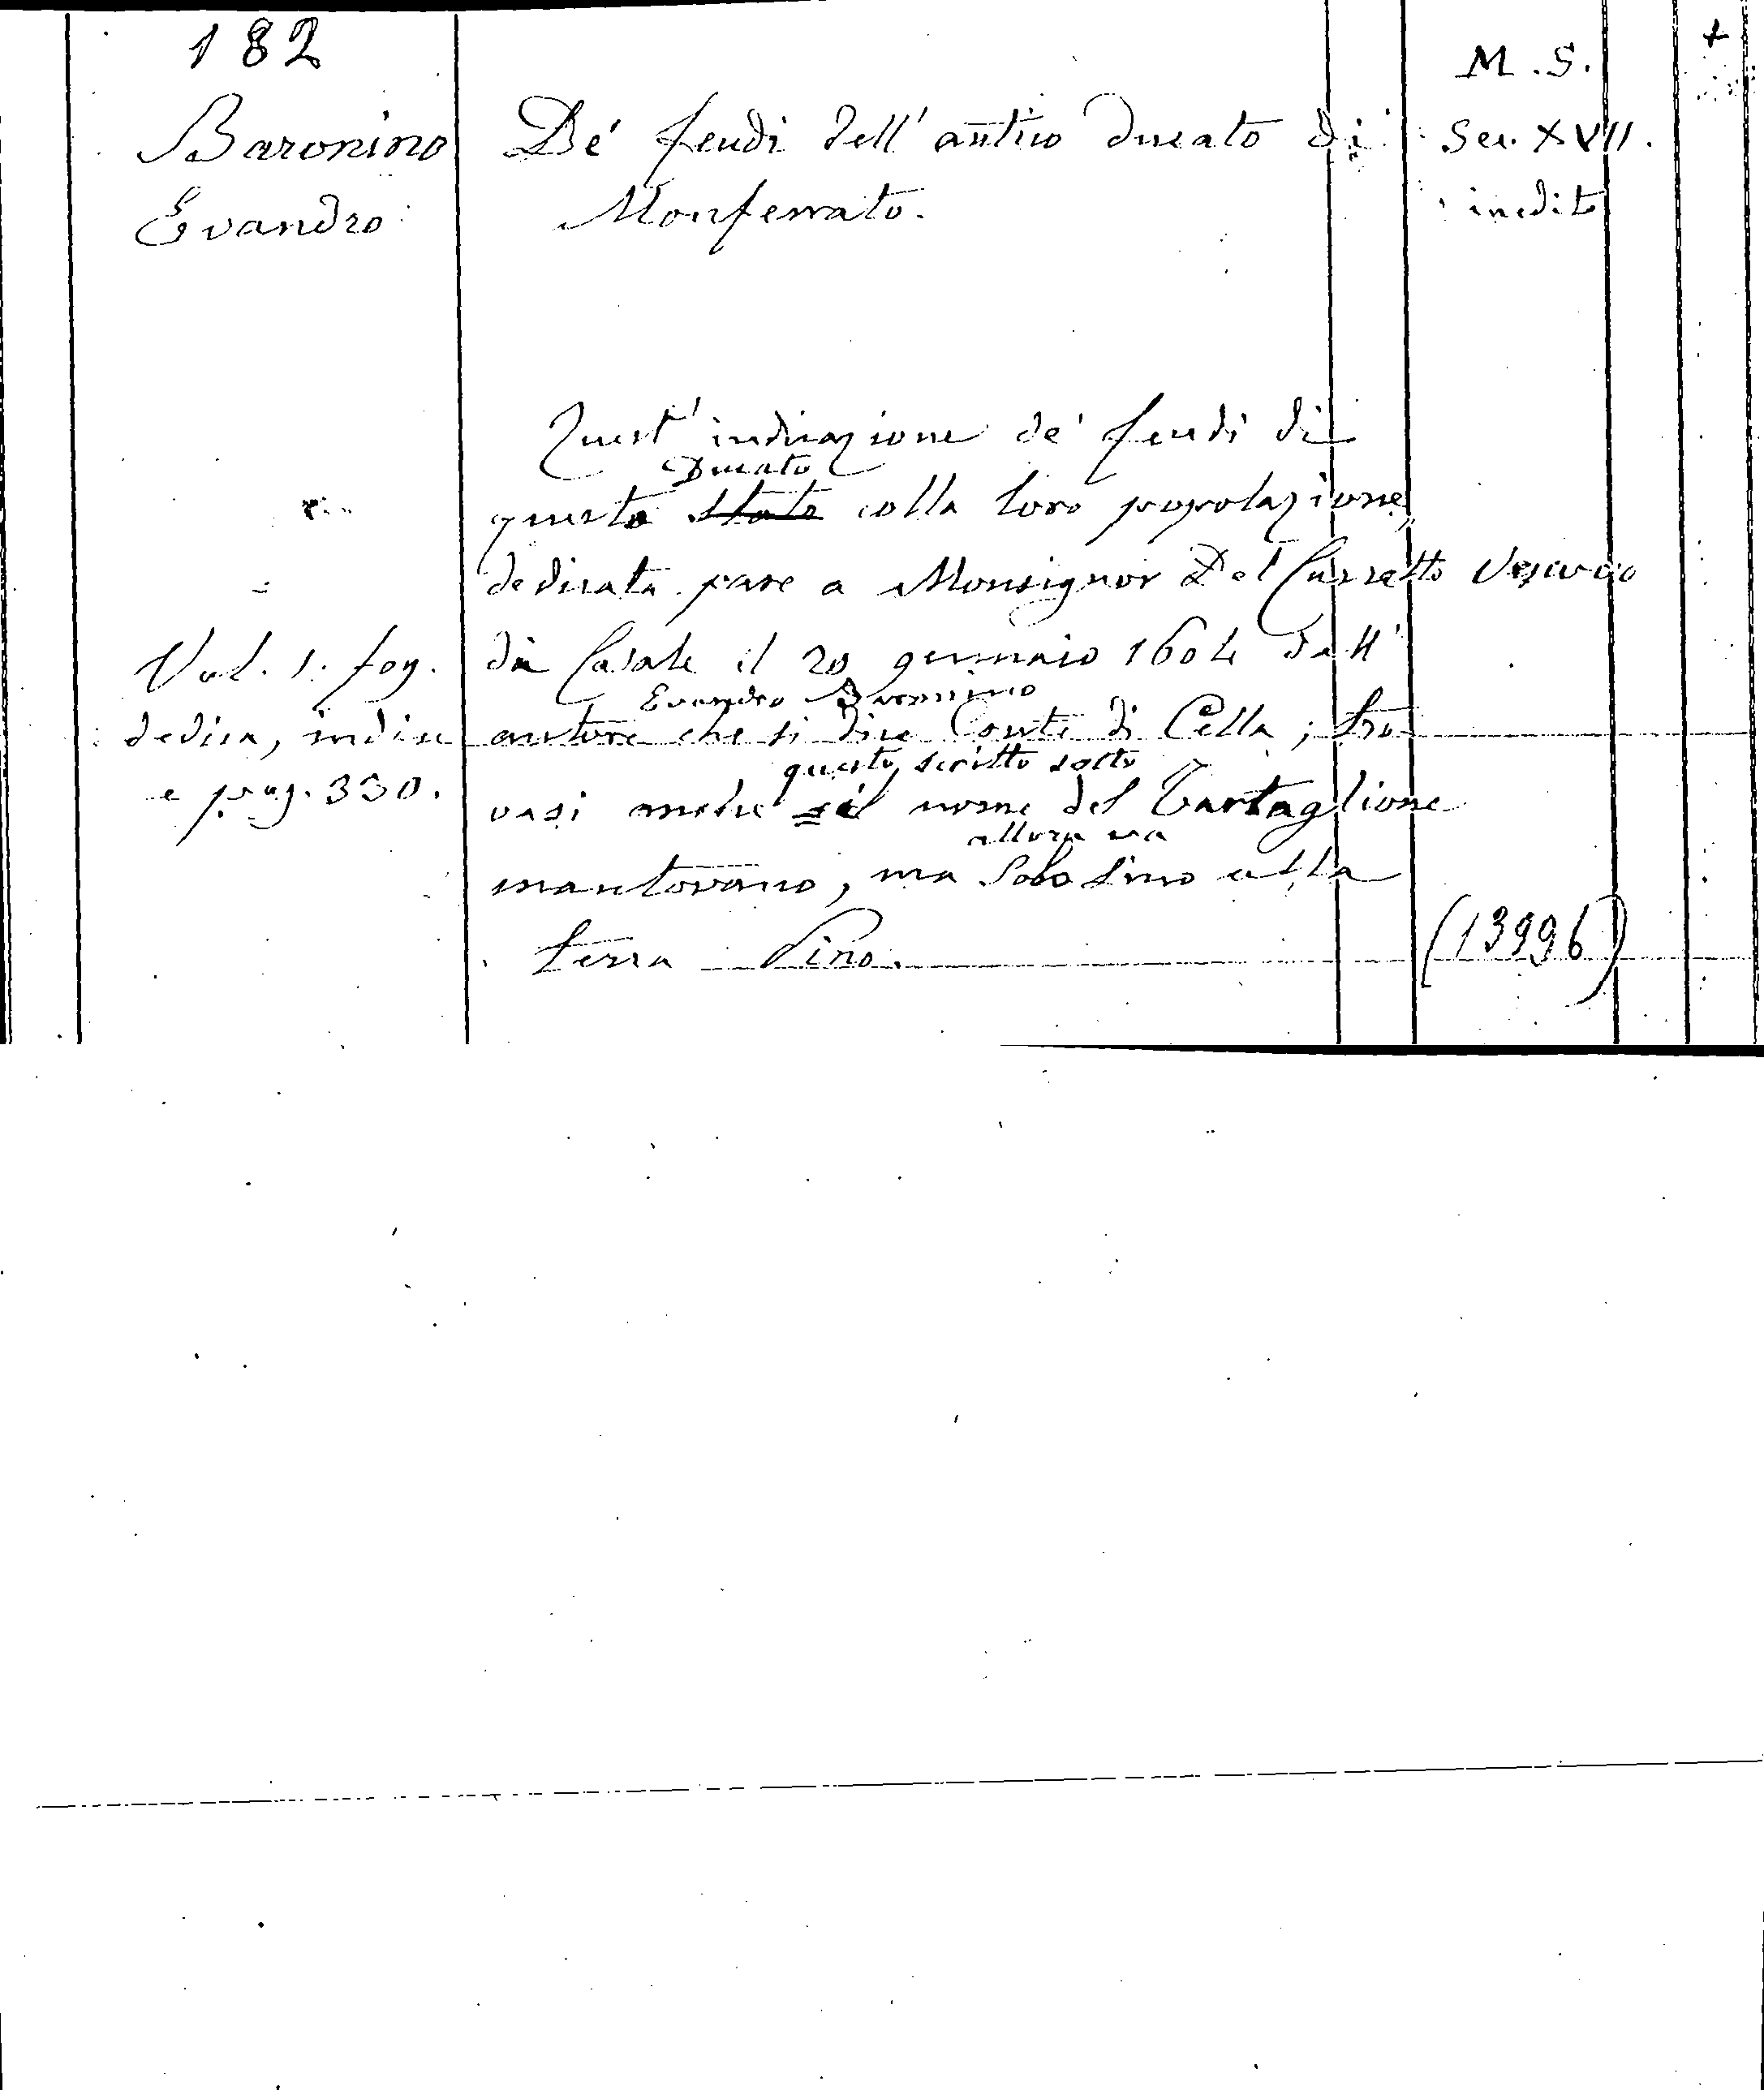 182
Baronino
Evandro
De' feudi dell' antico ducato di
Monferrato.
M.S.
Sec. XVII.
inedito
+
Quest' indicazione de' feudi di
Ducato
questo stato colla loro popolazione,
dedicata pare a Monsignor Del Carretto Vescovo
di Casale il 20 gennaio 1604 dall'
Evandro Baronino
autore che si dice Conte di Cella; tro
questo scritto sotto
vasi anche il nome del Tartaglione
allora era
mantovano, ma solo sino alla
terra Pino.
Vol. 1. fog.
dedica, indice
e pag. 330.
(13996)